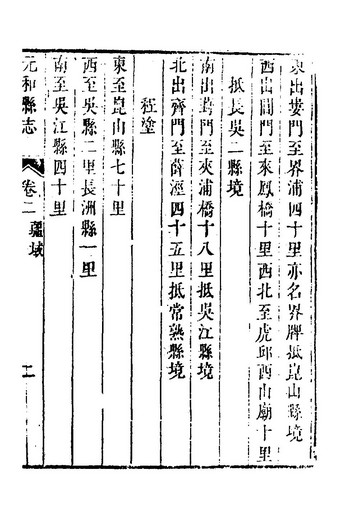 東出婁門至界浦四十里亦名界牌抵崑山縣境
西出閶門至來鳳橋十里西北至虎邱西山廟十里
抵長吳二縣境
南出葑門至夾浦橋十八里抵吳江縣境
北出齊門至薛涇四十五里抵常熟縣境
程塗
東至崑山縣七十里
西至吳縣二里長洲縣一里
南至吳江縣四十里
元和縣志
卷二
疆域
二